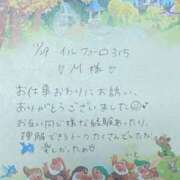 11/19 イルファーロ315
♡ M 様 ♡
お仕事おわりにお誘い、
ありがとうございました☺♡
お互い同じ様な経験あたり、
理解できるトークたくさんでたのも
楽しかったね♡